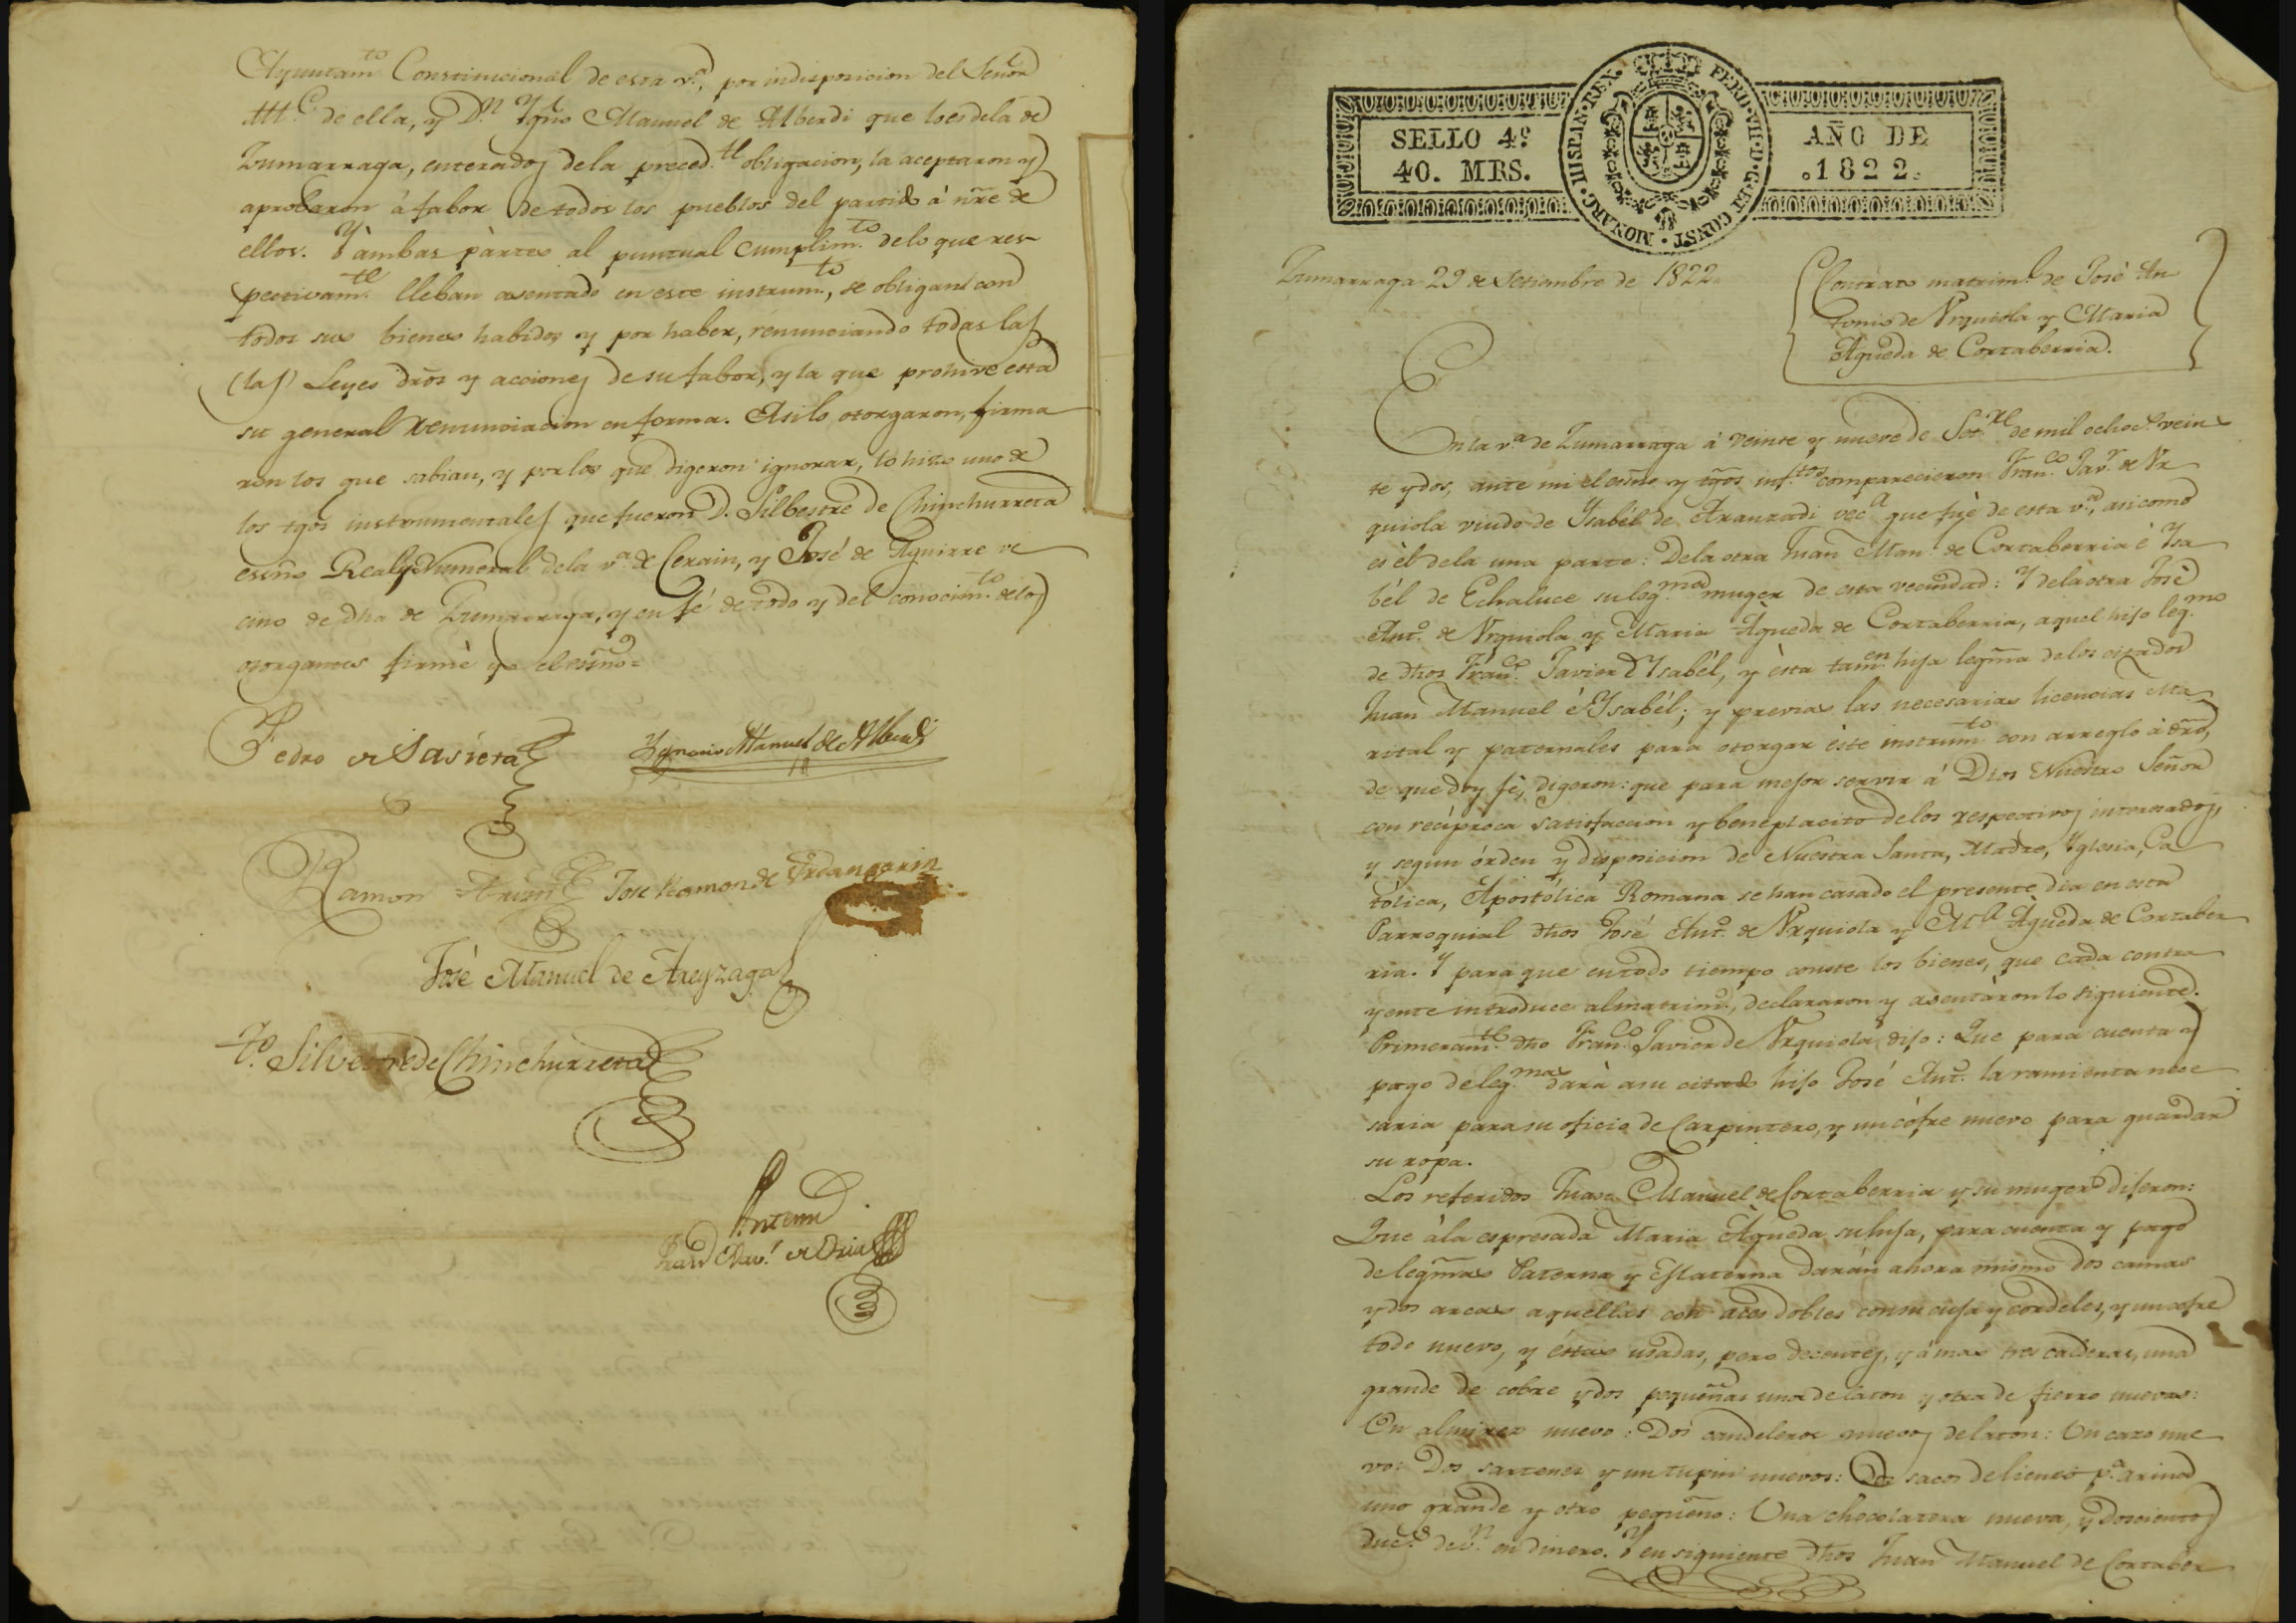 Ayuntam.to Constitucional de esta v.a, por indisposicion del Señor
Alc.e de ella, y D.n Ygño Manuel de Alberdi que lo es dela de
Zumarraga, enterados dela preced.te obligacion, la aceptaron y
aprobaron à fabor de todos los pueblos del partido á ñre de
ellos. Y àmbas pàrtes al puntual cumplim.to delo que res-
pectivam.te lleban asentado en este instrum.to, se obligan con
todos sus bienes habidos y por haber, renunciando todas las
(las) Leyes dr̃os y acciones de su fabor, y la que prohive esta
su general renunciacion en forma. Asi lo otorgaron, firma
ron los que sabian, y por los que digeron ignorar, lo hizo uno de
los tgõs instrumentales que fueron D. Silbestre de Chinchurreta
esñno Real y Numeral dela v.a de Cerain, y José de Aguirre ve
cino de dha de Zumarraga, y en fé de todo y del conocim.to delos
otorgantes firmè yo el esñno=
Pedro de Sasieta
Ygnacio Manuel de Alberdi
Ramon José Ramon de Ordangarin
José Manuel de Areyzaga
To. Silvestre de Chinchurreta
Antemi
Fran.co Xav.r de Oria
MONARC. HISPAN. REX. FERD. VII. D. G. ET CONST.
SELLO 4º
40. MRS.
AÑO DE
1822.
Zumarraga 29 de Setiembre de 1822.
Contrato matrim.l de José An
tonio de Vrquiola y Maria
Àgueda de Cortaberria.
En la v.a de Zumarraga á veinte y nueve de Set.re de mil ochoc.s vein
te y dos, ante mi el esñno y tgõs inf.tos comparecieron Fran.co Jav.r de Vr
quiola viudo de Ysabél de Aranzadi vec.a que fuè de esta v.a, asi como
es èl dela una parte: Dela otra Juan Man.l de Cortaberria è Ysa
bél de Echaluce su leg.ma muger de esta vecindad: Y dela otra José
Ant.o de Vrquiola y Maria Àgueda de Cortaberria, aquel hijo leg.mo
de dhos Fran.co Javier è Ysabél, y èsta tam.en hija legm̃a delos citados
Juan Manuel é Ysabél; y previas las necesarias licencias Ma
rital y paternales para otorgar èste instrum.to con arreglo à dr̃o,
de que doy fé, digeron: que para mejor servir á Dios Nuestro Señor
con recíproca satisfaccion y beneplacito delos respectivos interesados,
y segun órden y disposicion de Nuestra Santa, Madre, Yglesia, Ca
tólica, Apostólica Romana se han casado el presente dia en esta
Parroquial dhos José Ant.o de Vrquiola y M.a Àgueda de Cortaber
ria. Y para que en todo tiempo conste los bienes, que cada contra
yente introduce al matrim.o, declararon y asentàron lo siguiente.
Primeram.te dho Fran.co Javier de Vrquiola dijo: Que para cuenta y
pago de leg.mas darà a su citado hijo José Ant.o la ramienta nece
saria para su oficio de Carpintero, y un cófre nuevo para guardar
su rópa.
Los referidos Juan Manuel de Cortaberria y su muger dijeron:
Que à la espresada Maria Àgueda su hija, para cuenta y pago
de legm̃as Paterna y Materna darán ahora mismo dos camas
y dos arcas aquellas con dobles con su cuja y cordeles, y un cofre
todo nuevo, y éstas usadas, pero decentes, y á mas tres calderas, una
grande de cobre y dos pequeñas una de laton y otra de fierro nuevas:
Un almirez nuevo: Dos candeleros nuevos de laton: Un cazo nue
vo: Dos sartenes y un tupin nuevos: Dos sacos de lienzo p.a arina
uno grande y otro pequeño: Una chocolatera nueva, y doscientos
duc.s de v.n en dinero. Y en siguiente dhos Juan Manuel de Cortaber